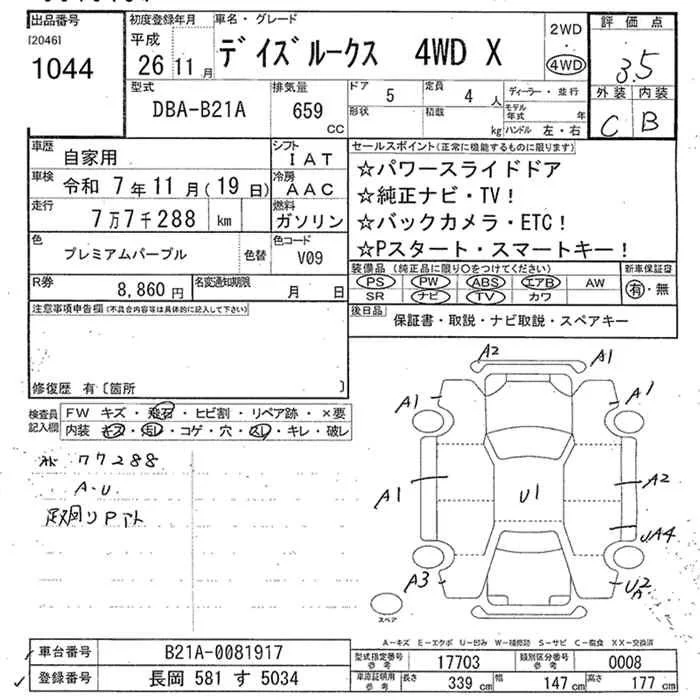 出品番号
[2046]
1044
初度登録年月
平成
26 11月
車名・グレード
デイズルークス 4WD X
2WD
・
4WD
評価点
3.5
外装 内装
C B
型式
DBA-B21A
排気量
659
CC
ドア
5
定員
4 人
形状
積載
kg
ディーラー・並行
モデル年式 年
ハンドル 左・右
車歴 自家用
シフト IAT
車検 令和 7年11月(19日)
冷房 AAC
走行 7万7千288 km
燃料 ガソリン
色 プレミアムパープル 色替
色コード V09
R券 8,860円
名変通知期限 月 日
セールスポイント(正常に機能するものに限ります)
☆パワースライドドア
☆純正ナビ・TV！
☆バックカメラ・ETC！
☆Pスタート・スマートキー！
装備品 (純正品に限り〇をつけてください)
PS PW ABS エアB AW
SR ナビ TV カワ
新車保証書
有・無
後日品 保証書・取説・ナビ取説・スペアキー
注意事項申告欄(不具合内容等は具体的に記入して下さい)
修復歴 有〔箇所 〕
検査員記入欄
FW キズ・飛石・ヒビ割・リペア跡・×要
内装 キズ・汚レ・コゲ・穴・スレ・キレ・破レ
77288
A-U
A2
A1
A1
A1
A1
A2
U1
UA4
A3
U2
スペア
A-キズ E-エクボ U-凹み W-補修跡 S-サビ C-腐食 XX-交換済
車台番号 B21A-0081917
登録番号 長岡 581 す 5034
型式指定番号 参考 17703
類別区分番号 参考 0008
車庫証明用 参考
長さ 339 cm
幅 147 cm
高さ 177 cm